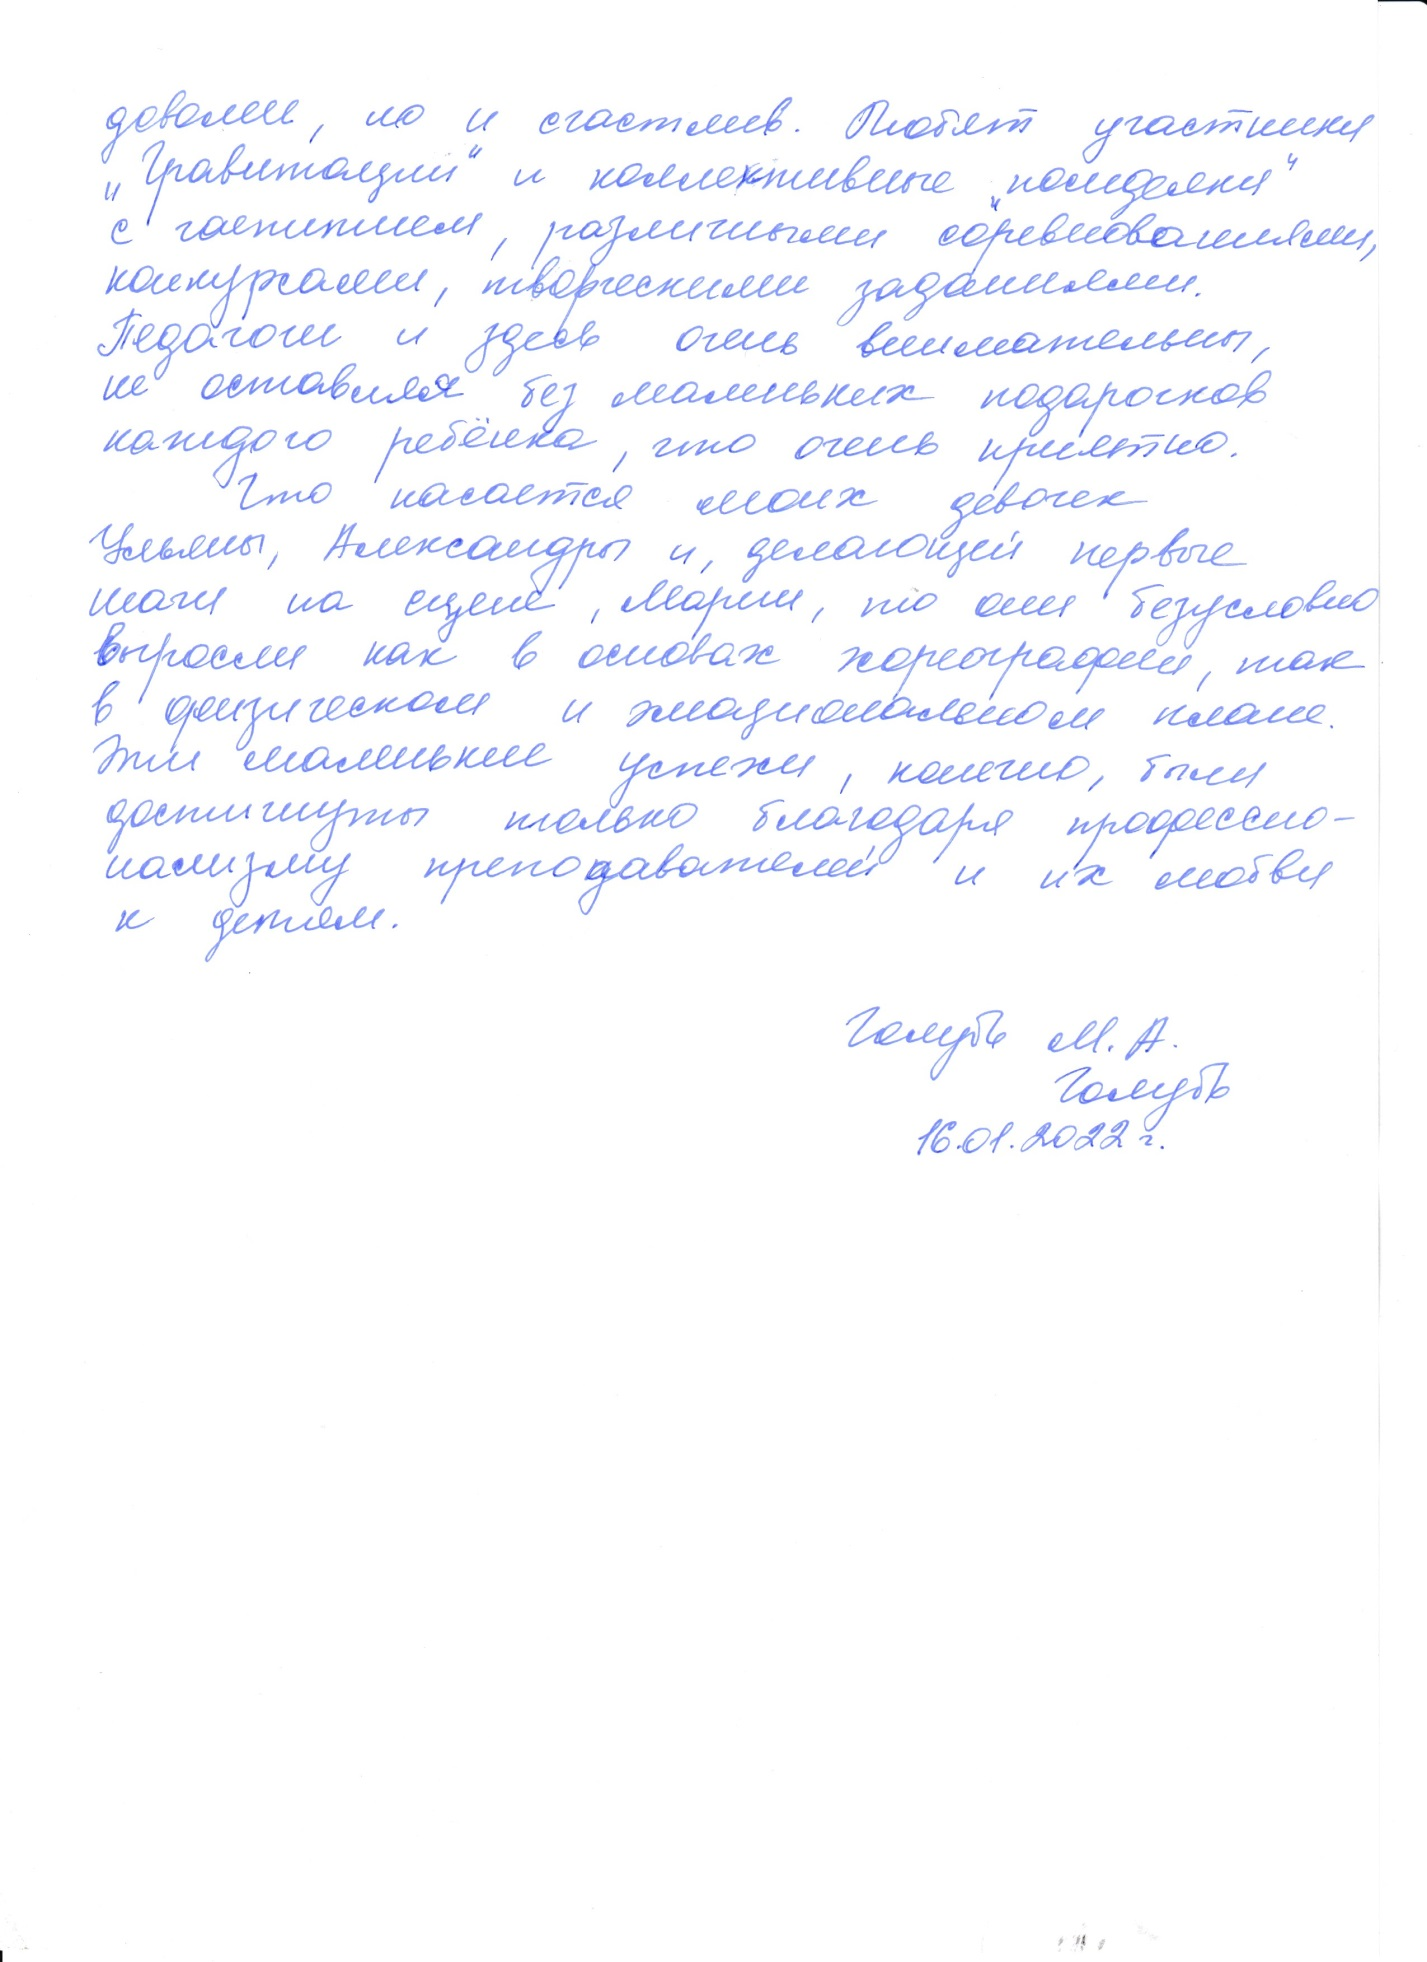 доволен, но и счастлив. Любят участники
„Гравитации“ и коллективные „посиделки“
с чаепитием, различными соревнованиями,
конкурсами, творческими заданиями.
Педагоги и здесь очень внимательны,
не оставляя без маленьких подарочков
каждого ребёнка, что очень приятно.
Что касается моих девочек
Ульяны, Александры и, делающей первые
шаги на сцене, Марии, то они безусловно
выросли как в основах хореографии, так
в физическом и эмоциональном плане.
Эти маленькие успехи, конечно, были
достигнуты только благодаря профессио-
нализму преподавателей и их любви
к детям.
Голубь М. А.
Голубь
16.01.2022 г.